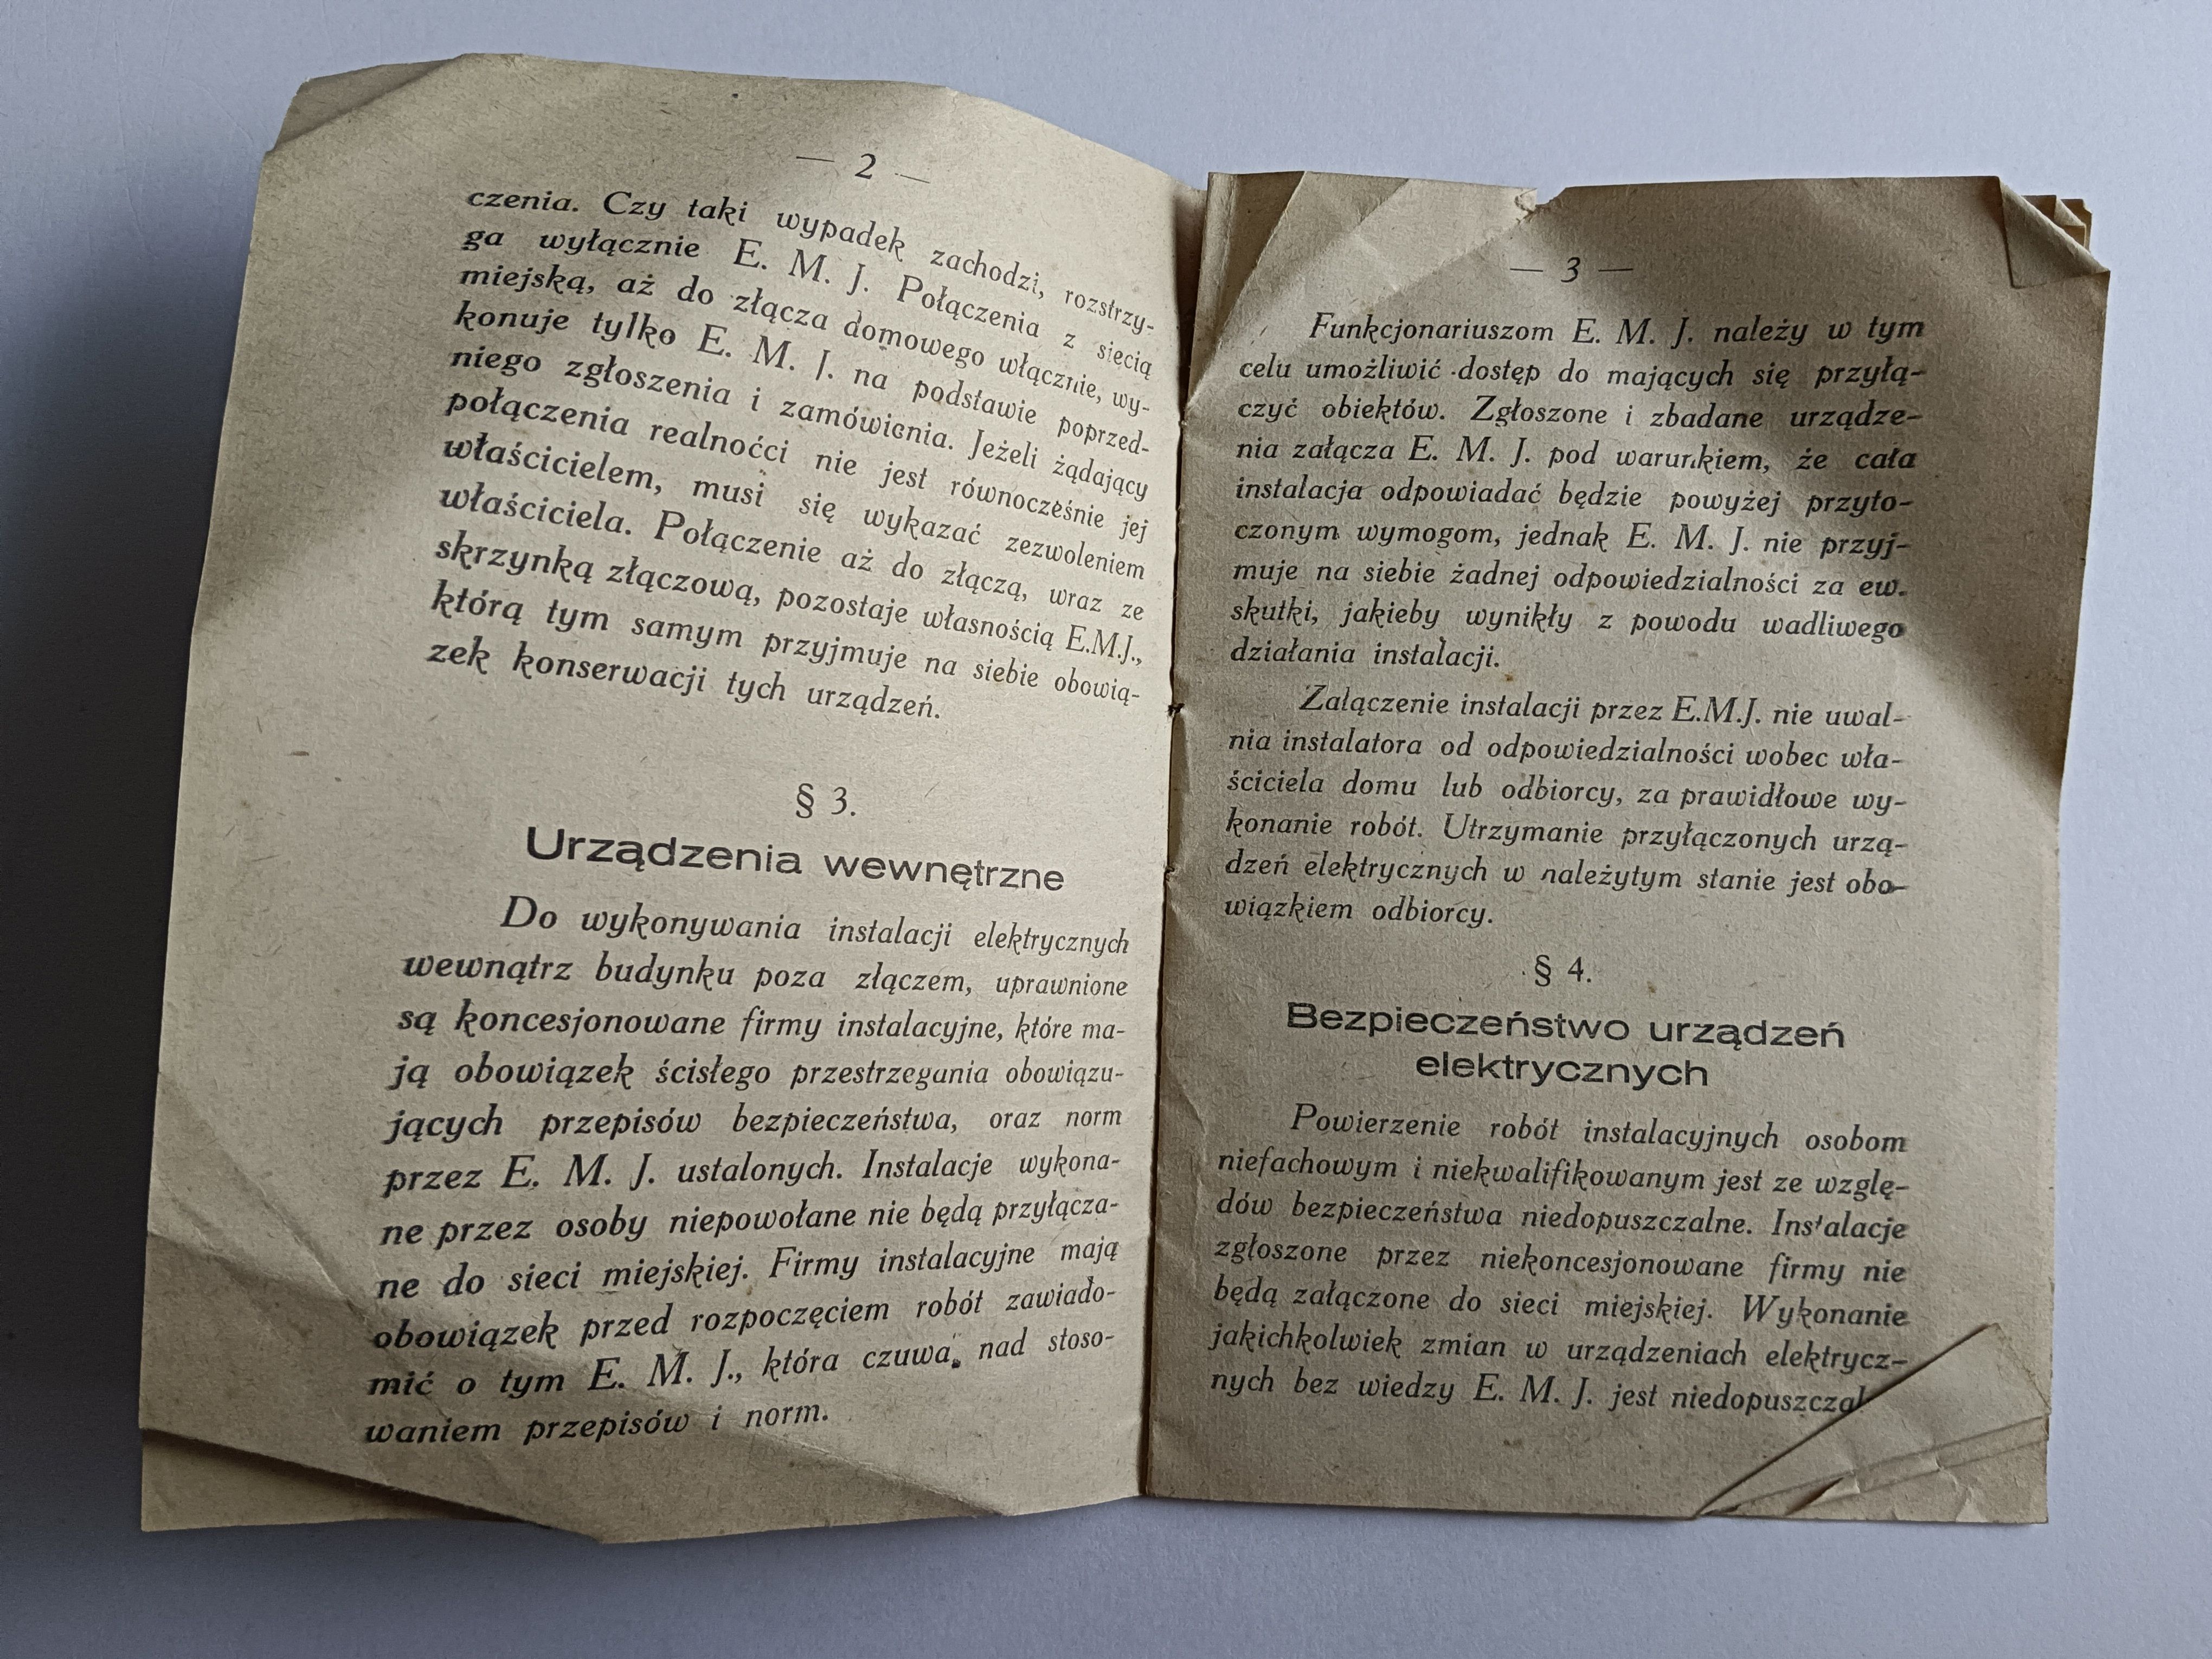 — 2 —
czenia. Czy taki wypadek zachodzi, rozstrzy-
ga wyłącznie E. M. J. Połączenia z siecią
miejską, aż do złącza domowego włącznie, wy-
konuje tylko E. M. J. na podstawie poprzed-
niego zgłoszenia i zamówienia. Jeżeli żądający
połączenia realnoćci nie jest równocześnie jej
właścicielem, musi się wykazać zezwoleniem
właściciela. Połączenie aż do złączą, wraz ze
skrzynką złączową, pozostaje własnością E.M.J.,
którą tym samym przyjmuje na siebie obowią-
zek konserwacji tych urządzeń.
§ 3.
Urządzenia wewnętrzne
Do wykonywania instalacji elektrycznych
wewnątrz budynku poza złączem, uprawnione
są koncesjonowane firmy instalacyjne, które ma-
ją obowiązek ścisłego przestrzegania obowiązu-
jących przepisów bezpieczeństwa, oraz norm
przez E. M. J. ustalonych. Instalacje wykona-
ne przez osoby niepowołane nie będą przyłącza-
ne do sieci miejskiej. Firmy instalacyjne mają
obowiązek przed rozpoczęciem robót zawiado-
mić o tym E. M. J., która czuwa nad stoso-
waniem przepisów i norm.
— 3 —
Funkcjonariuszom E. M. J. należy w tym
celu umożliwić dostęp do mających się przyłą-
czyć obiektów. Zgłoszone i zbadane urządze-
nia załącza E. M. J. pod warunkiem, że cała
instalacja odpowiadać będzie powyżej przyto-
czonym wymogom, jednak E. M. J. nie przyj-
muje na siebie żadnej odpowiedzialności za ew.
skutki, jakieby wynikły z powodu wadliwego
działania instalacji.
Załączenie instalacji przez E.M.J. nie uwal-
nia instalatora od odpowiedzialności wobec wła-
ściciela domu lub odbiorcy, za prawidłowe wy-
konanie robót. Utrzymanie przyłączonych urzą-
dzeń elektrycznych w należytym stanie jest obo-
wiązkiem odbiorcy.
§ 4.
Bezpieczeństwo urządzeń
elektrycznych
Powierzenie robót instalacyjnych osobom
niefachowym i niekwalifikowanym jest ze wzglę-
dów bezpieczeństwa niedopuszczalne. Instalacje
zgłoszone przez niekoncesjonowane firmy nie
będą załączone do sieci miejskiej. Wykonanie
jakichkolwiek zmian w urządzeniach elektrycz-
nych bez wiedzy E. M. J. jest niedopuszczal